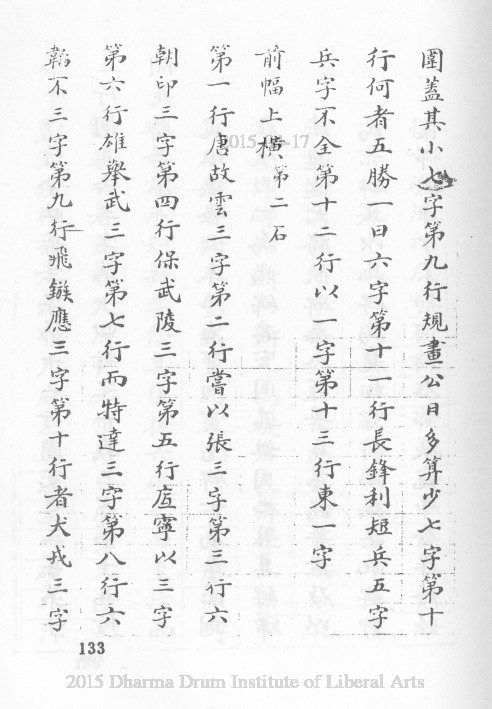 圍蓋其小七字第九行規畫公日多算少七字第十
行何者五勝一曰六字第十一行長鋒利短兵五字
兵字不全第十二行以一字第十三行東一字
前幅上橫第二石
第一行唐故雲三字第二行嘗以張三字第三行六
朝印三字第四行保武陵三字第五行寧以三字
第六行雄舉武三字第七行而特達三字第八行六
韜不三字第九行飛鏃應三字第十行者犬戎三字
133
2015-04-17
2015 Dharma Drum Institute of Liberal Arts